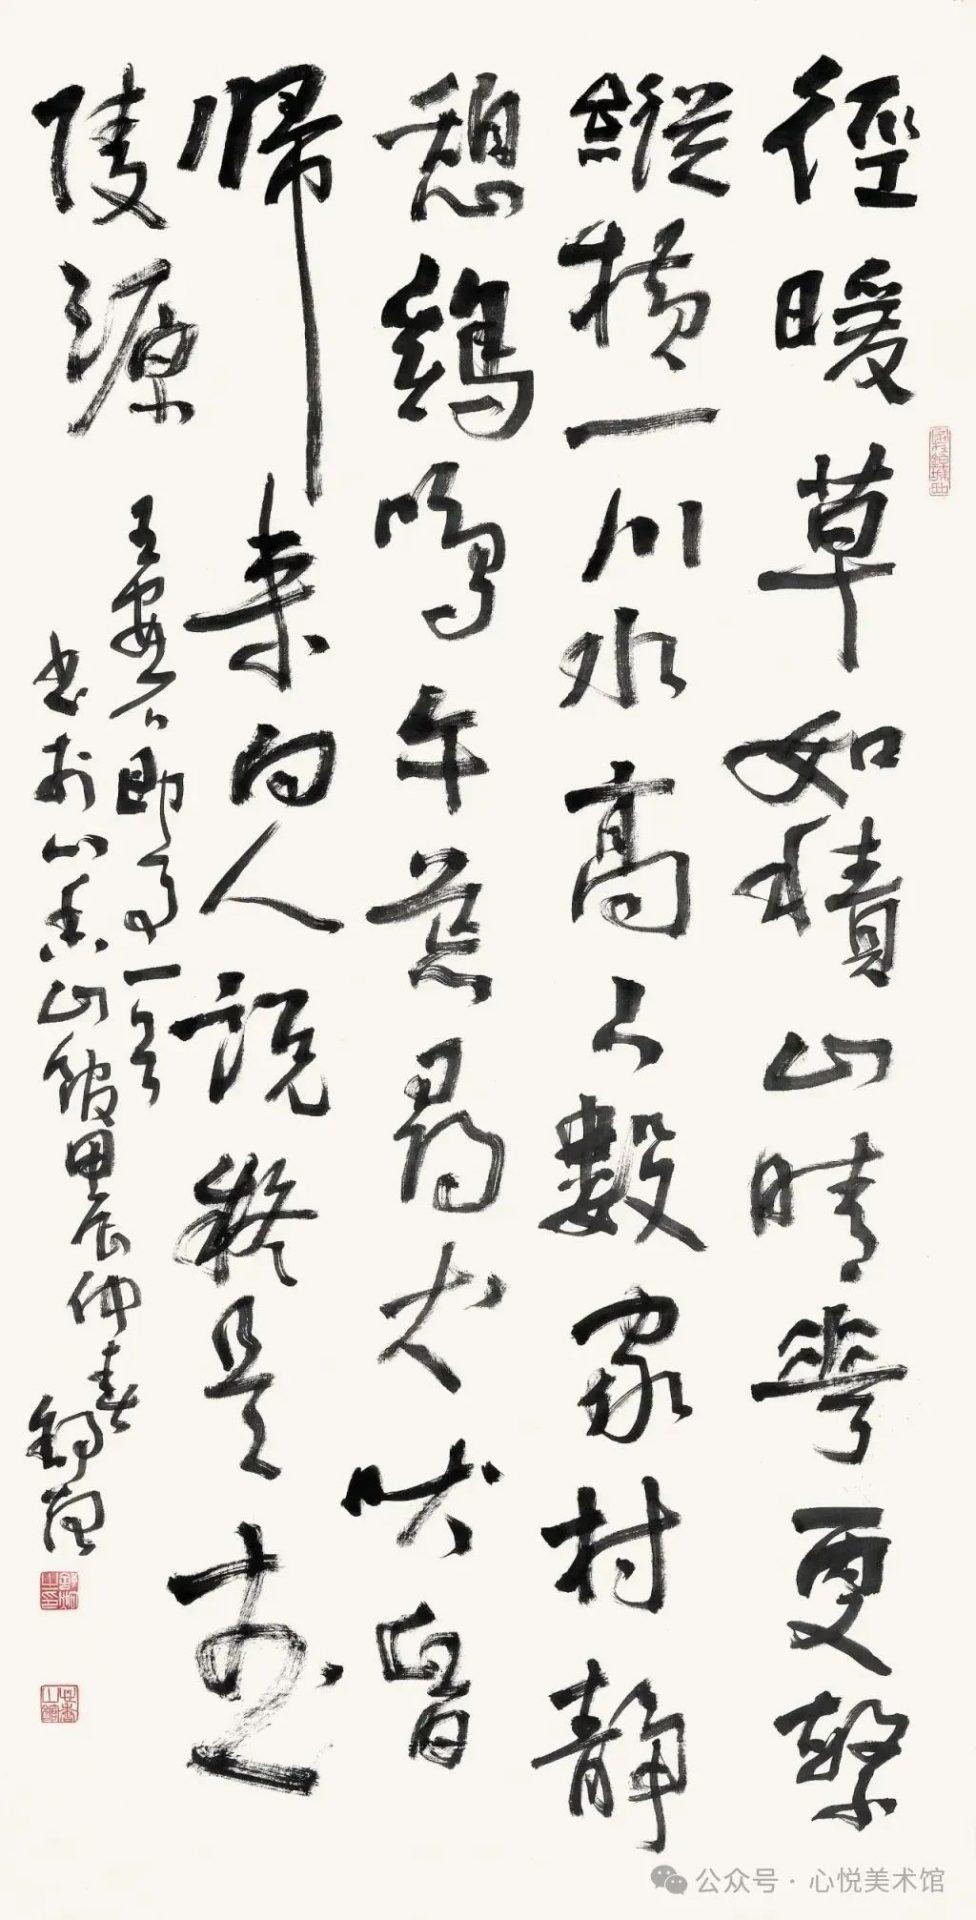 徑暖草如積山晴華更繁
縱橫一川水高下數家村靜
憩鷄鳴午荒尋犬吠昬
歸來向人說疑是武
陵源
王安石即事一首
書於心香山館甲辰仲春
公众号·心悦美术馆